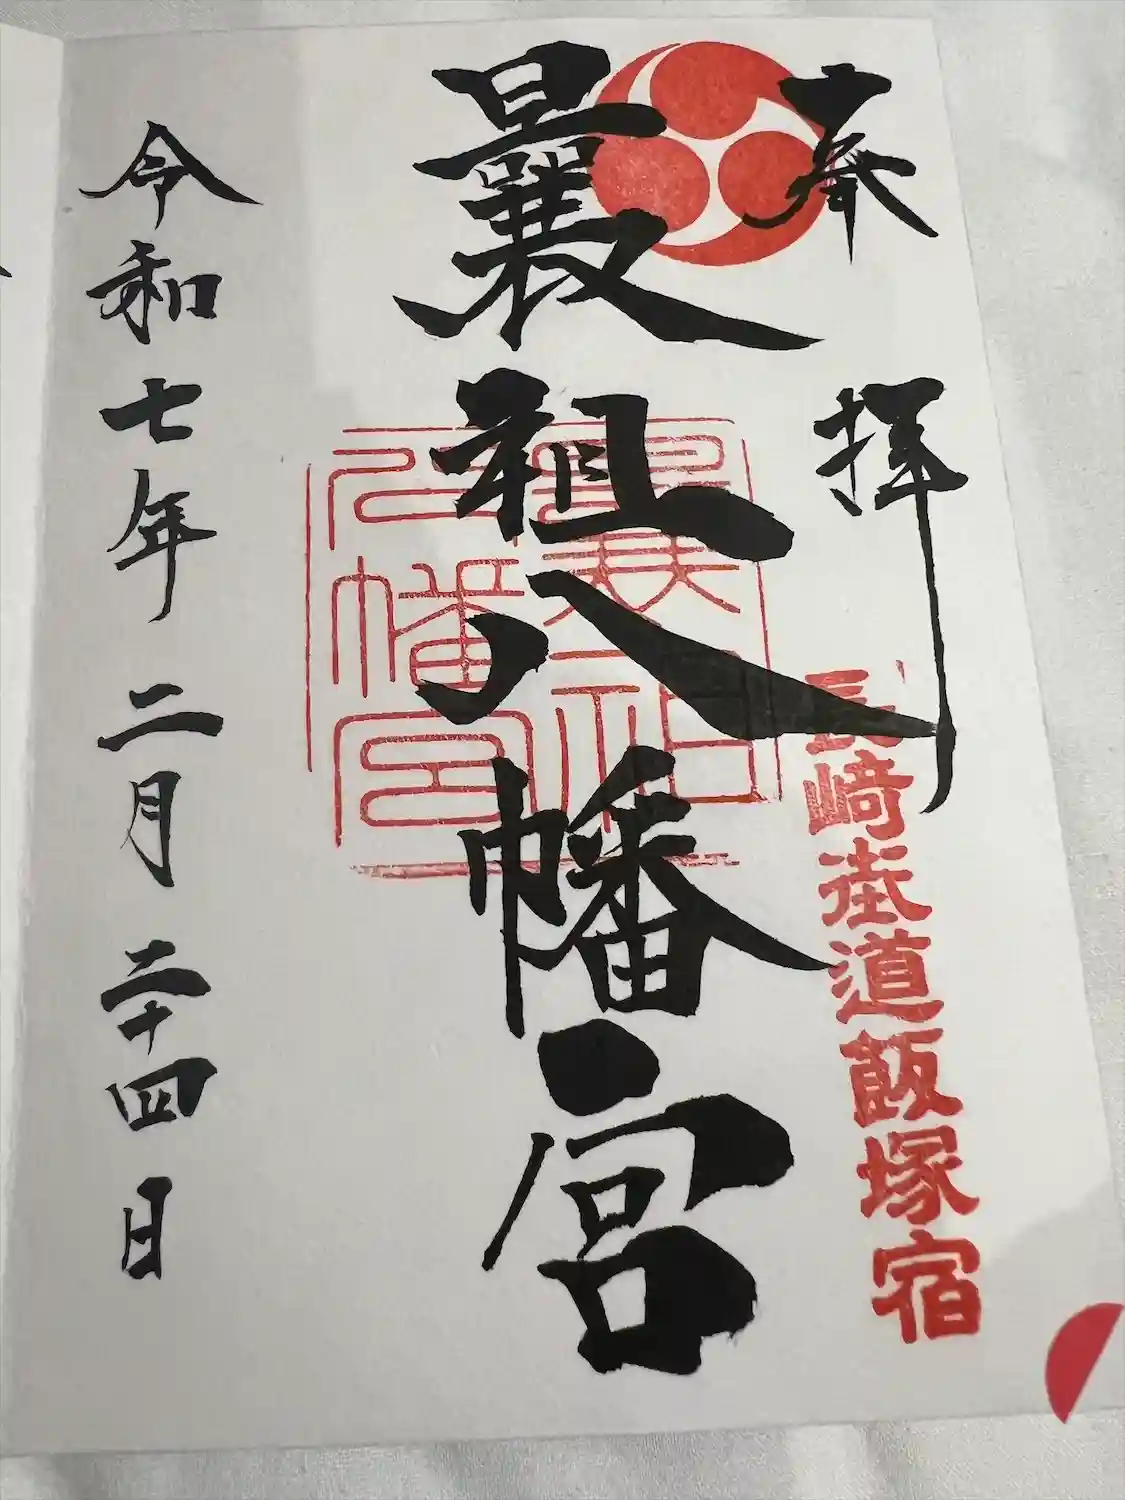 奉拝
長﨑街道飯塚宿
曩祖八幡宮
曩祖
八幡宮
令和七年二月二十四日